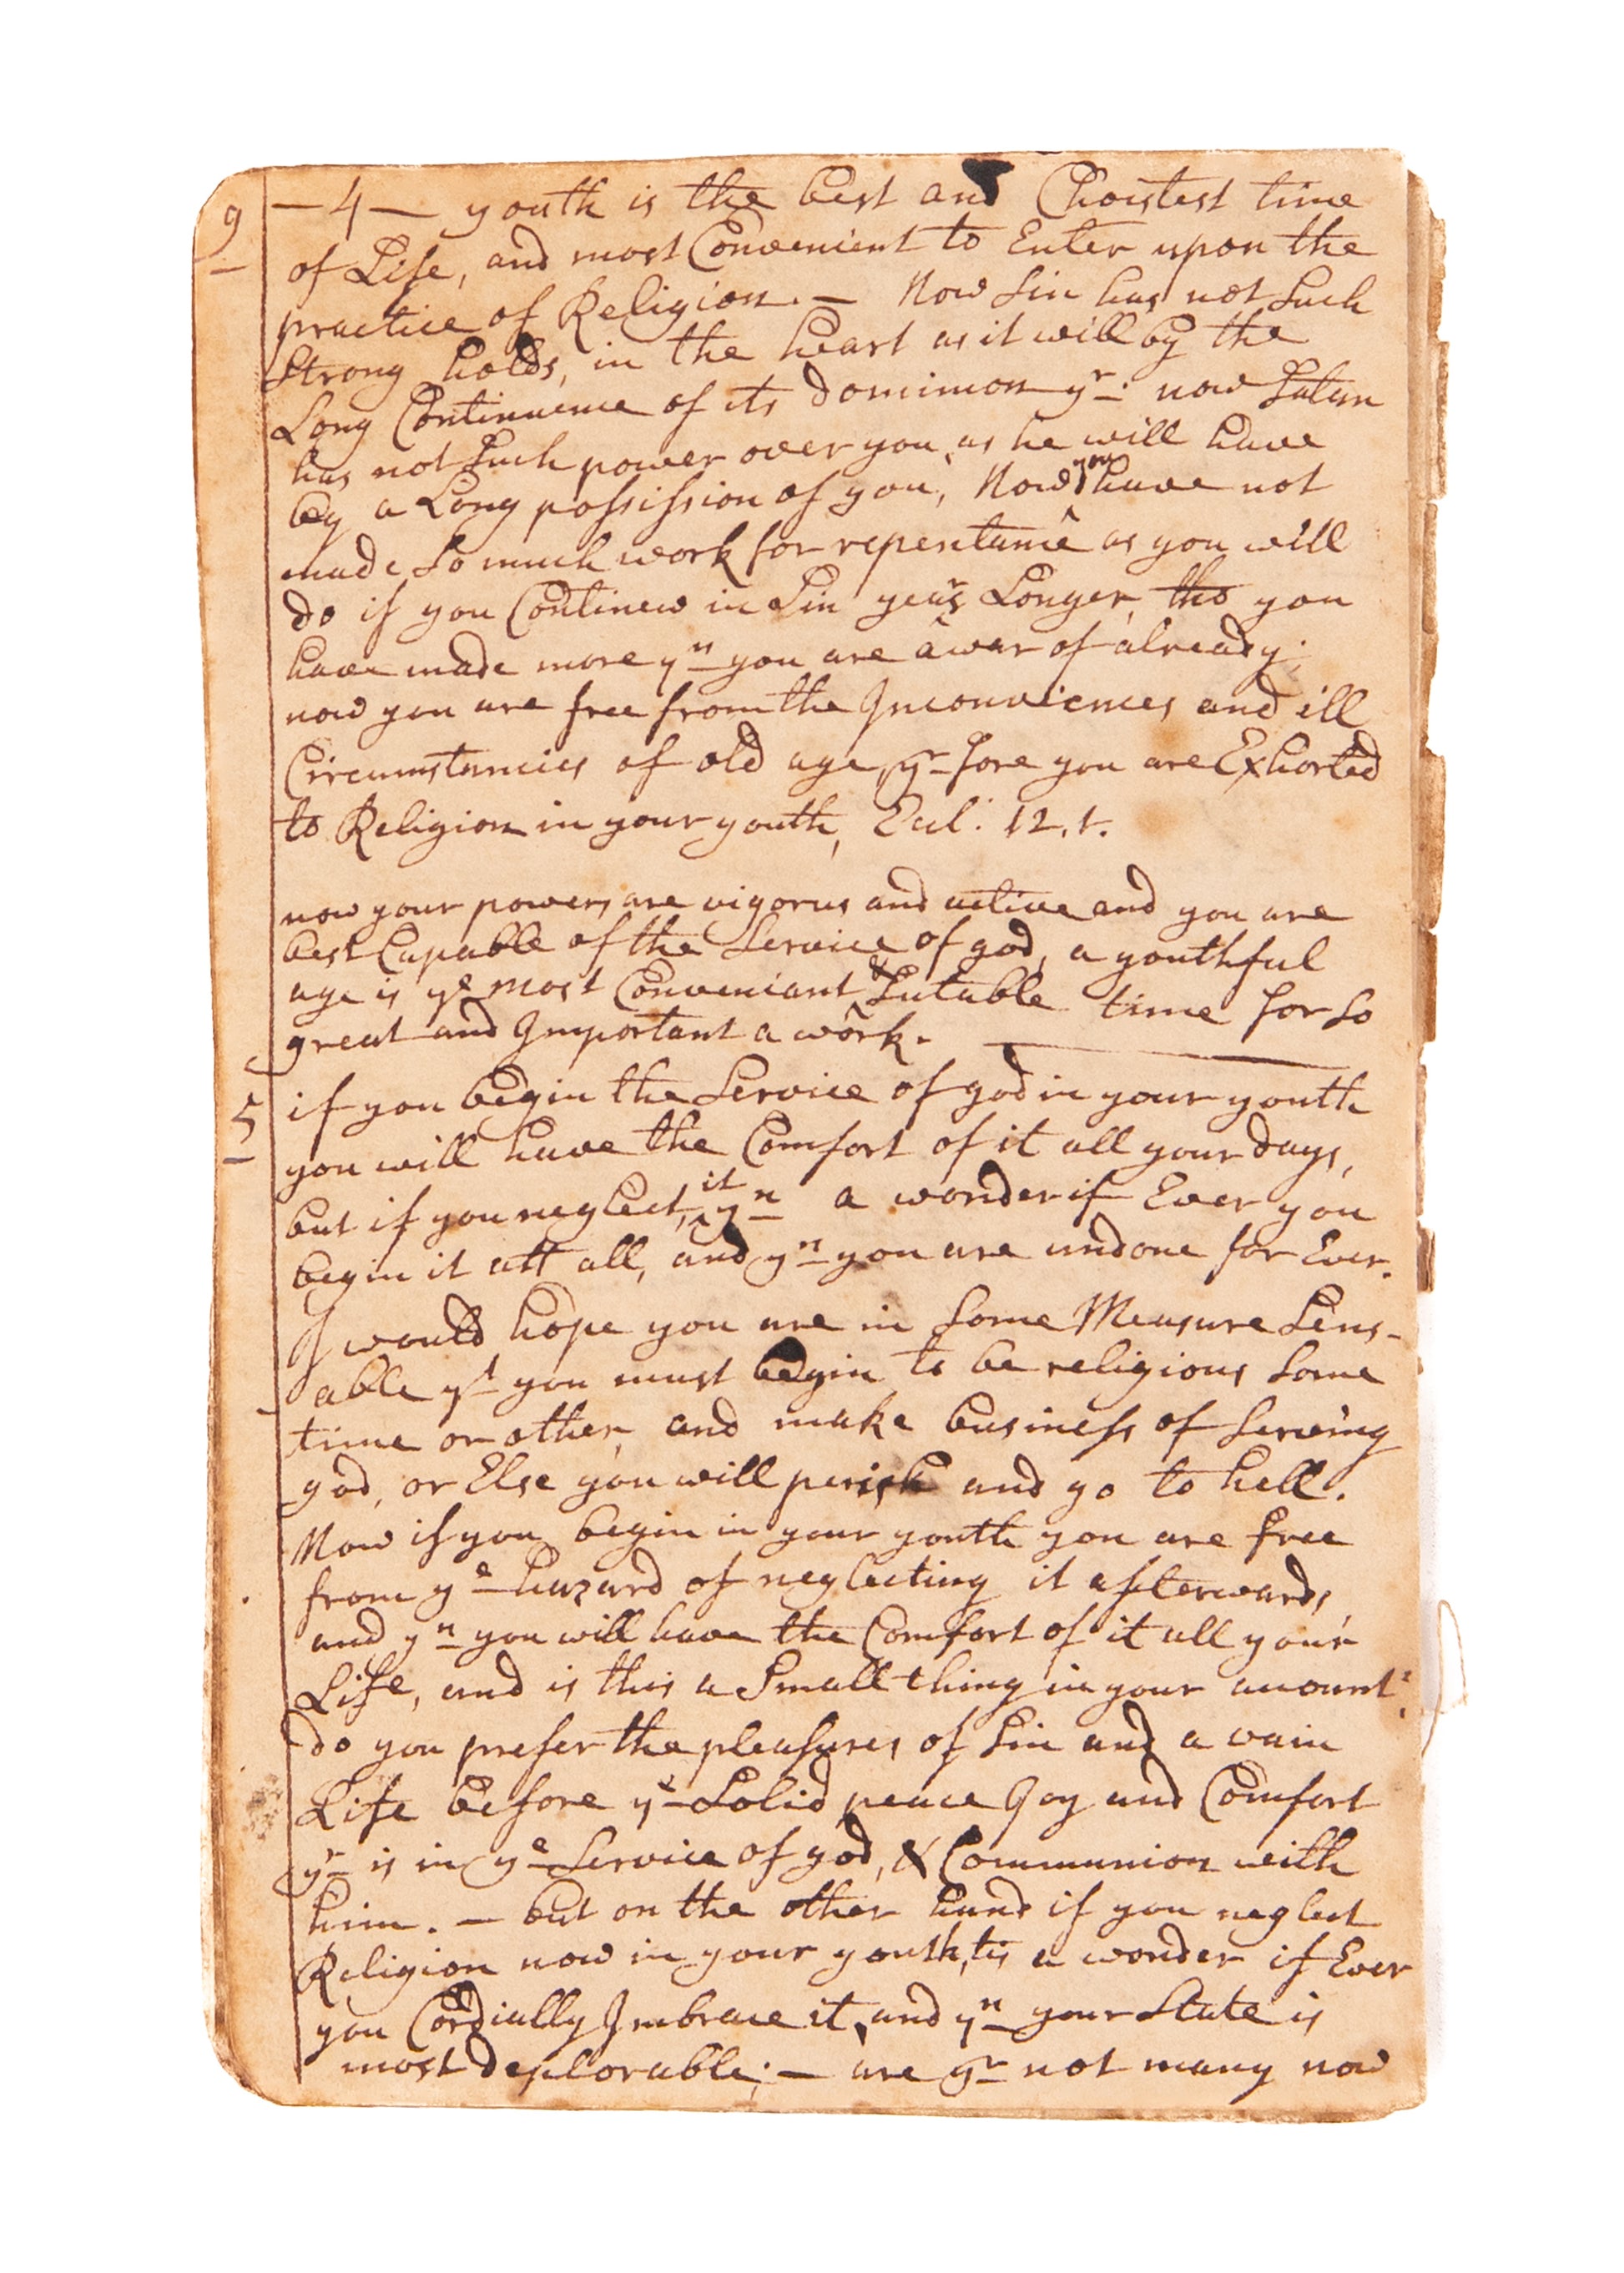 9 — 4 — youth is the best and Choistest time
of Life, and most Convenient to Enter upon the
practice of Religion. — Now Sin has not Such
Strong holds, in the heart as it will by the
Long Continuence of its dominion yr: now Satan
has not Such power over you, as he will have
by a Long possission of you, Now you have not
made So much work for repentance as you will
do if you Continew in Sin years Longer, tho you
have made more yn you are awar of already;
now you are free from the Inconviences and ill
Circumstancies of old age, yr fore you are Exhorted
to Religion in your youth, Ecul: 12.1.
now your powers are vigorus and active and you are
best Capable of the Service of god, a youthful
age is ye most Conveniant & Sutable time for So
great and Important a work.
5 if you begin the Service of god in your youth
you will have the Comfort of it all your days,
but if you neglect, it yn a wonder if Ever you
begin it att all, and yn you are undone for Ever.
I would hope you are in Some Measure Sens-
able yt you must begin to be religious Some
time or other, and make business of Serving
god, or Else you will perish and go to hell.
Now if you begin in your youth you are free
from ye hazard of neglecting it afterwards,
and yn you will have the Comfort of it all your
Life, and is this a Small thing in your acount?
do you prefer the pleasures of Sin and a vain
Life before ye Solid peace Joy and Comfort
yr is in ye Service of god, & Communion with
him. — but on the other hand if you neglect
Religion now in your youth, tis a wonder if Ever
you Cordially Imbrace it, and yn your State is
most deplorable; — are yr not many now